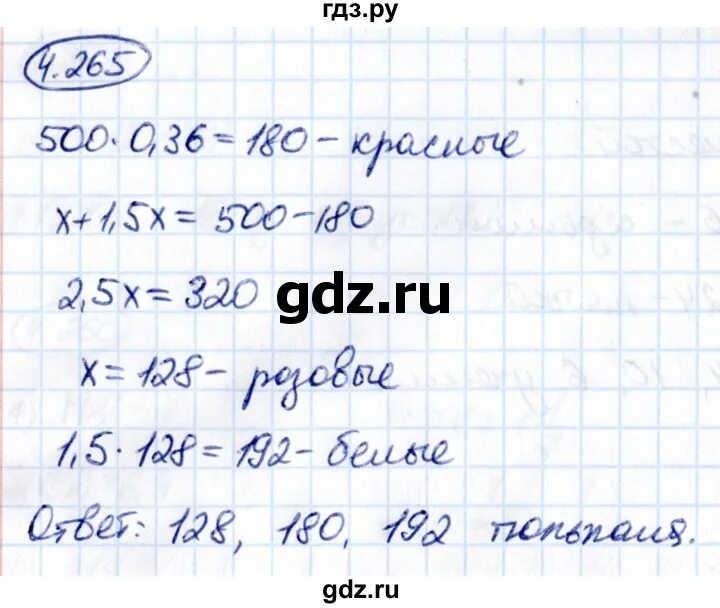 гдз.ру
4.265
500·0,36=180-красные
x+1,5x=500-180
2,5x=320
gdz.ru
x=128-розовые
1,5·128=192-белые
Ответ: 128, 180, 192 тюльпана.
gdz.ru